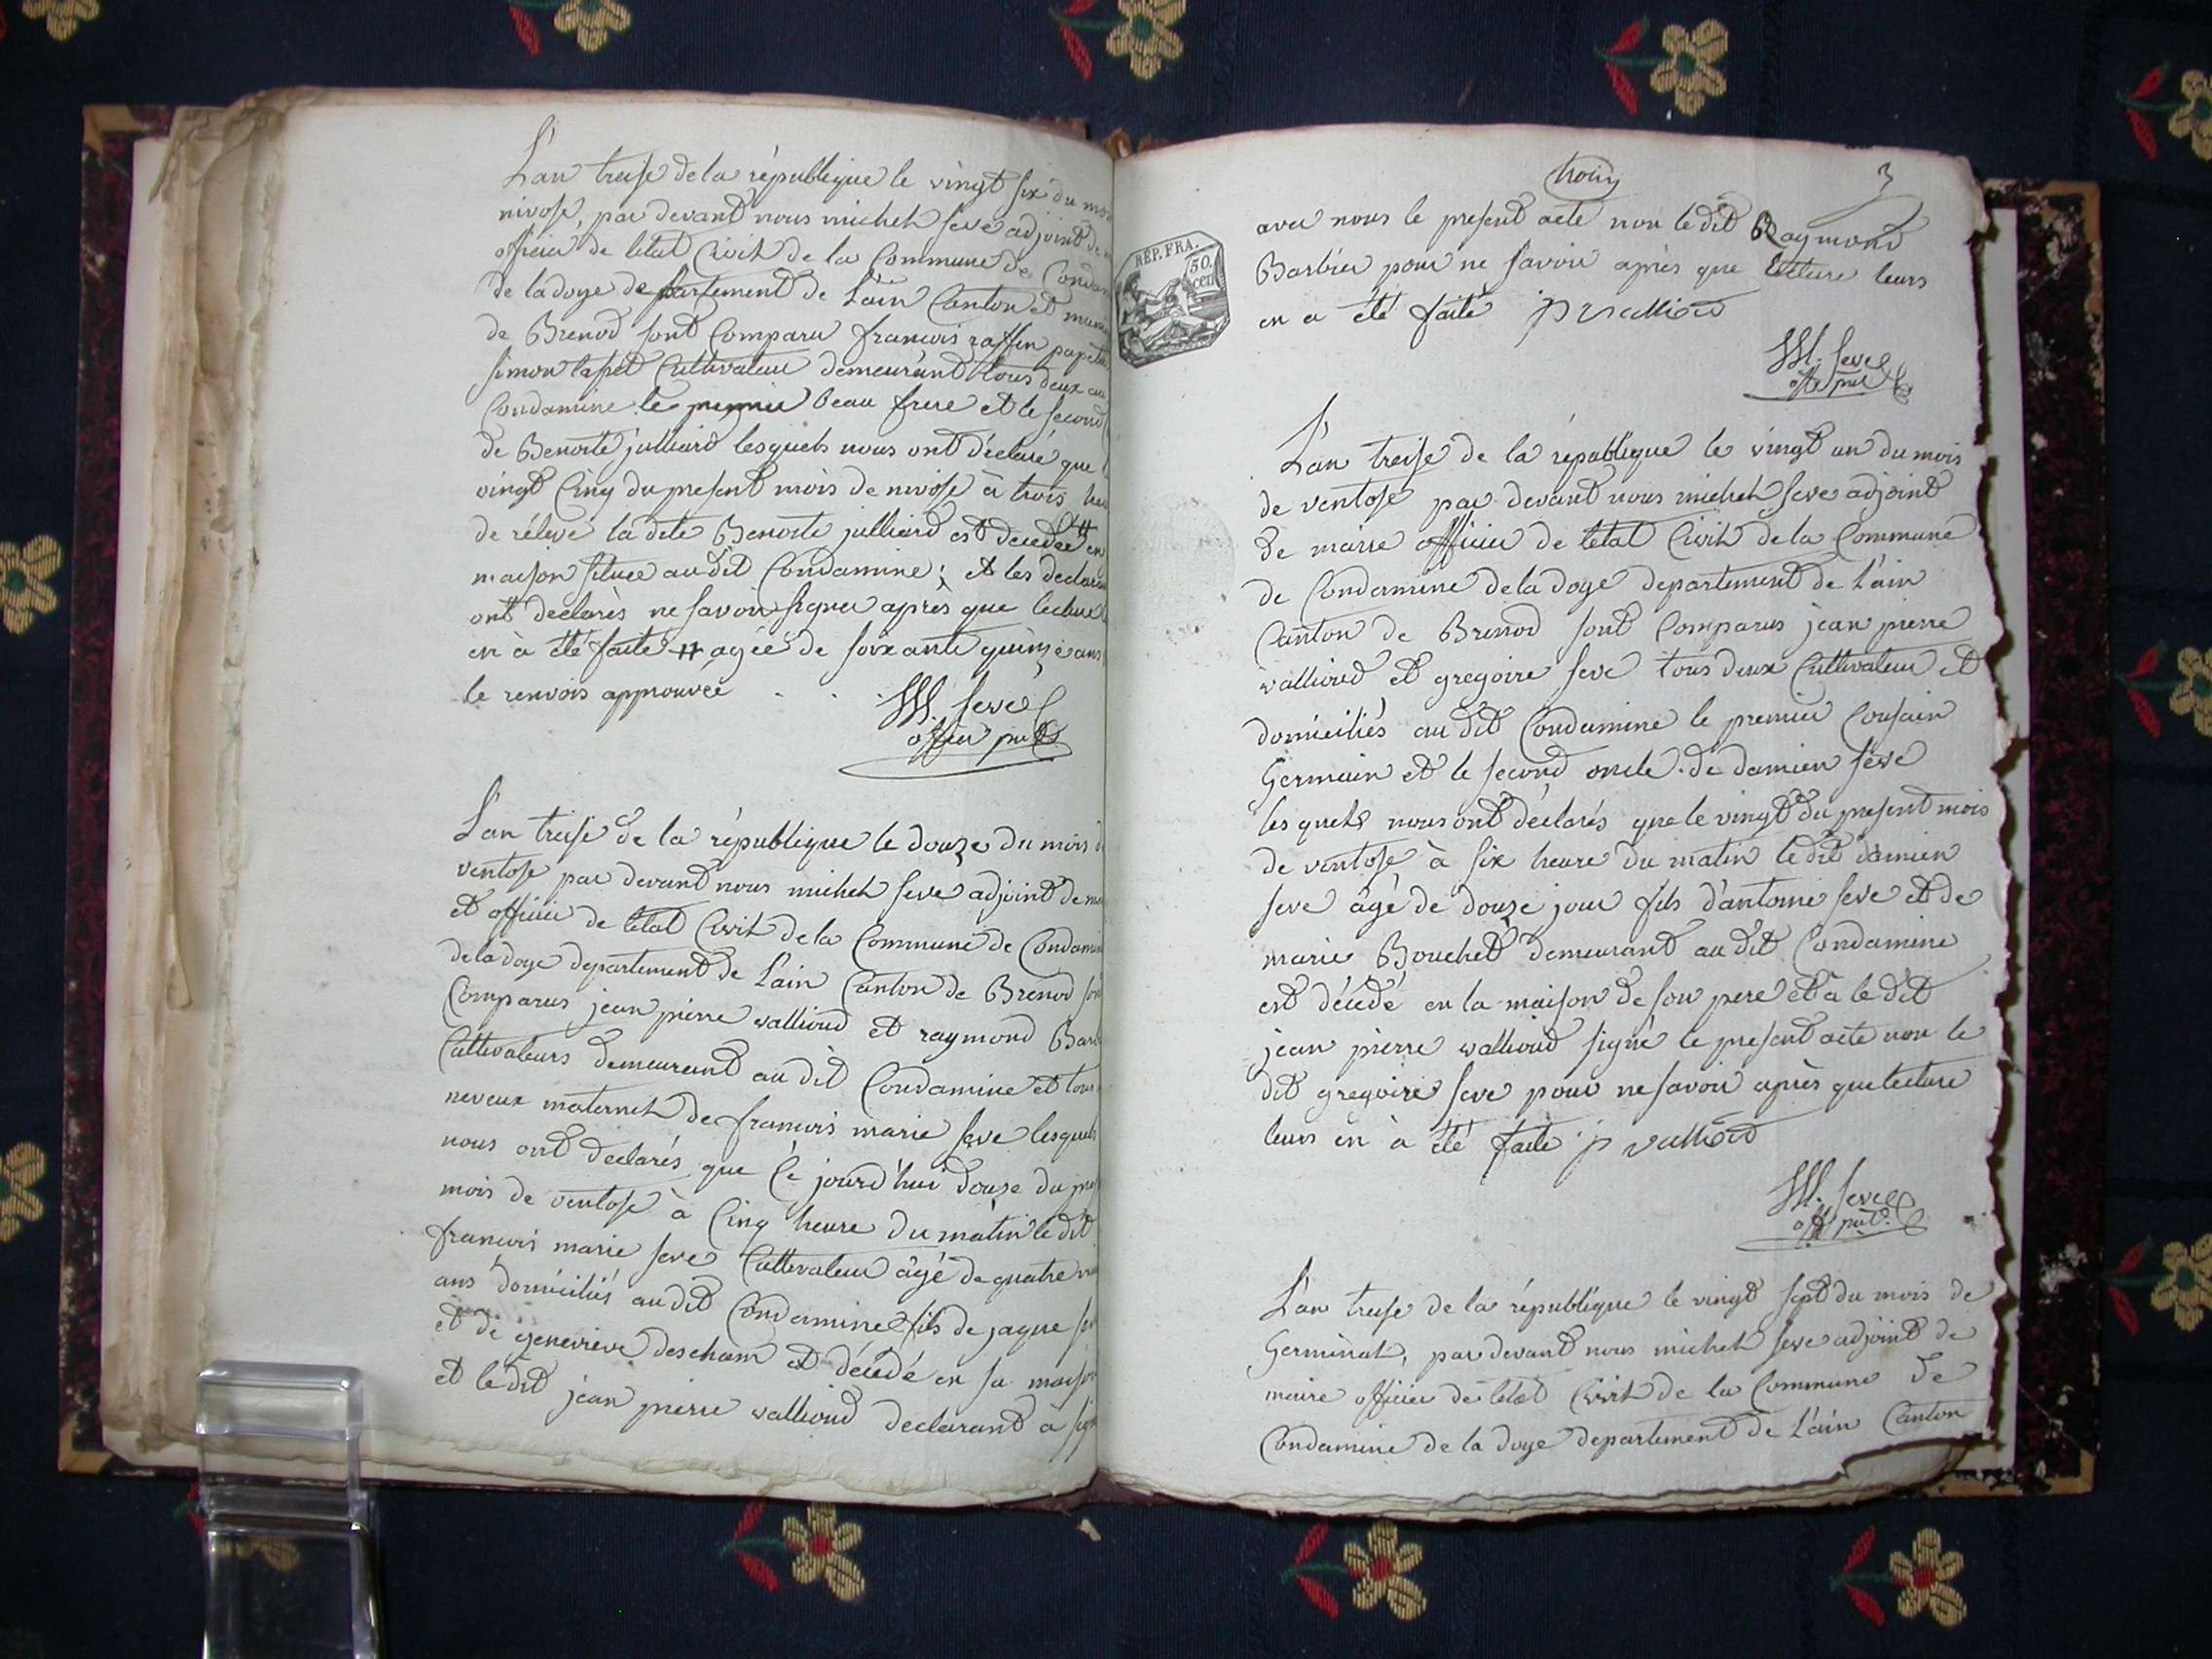 L'an treise de la république le vingt six du mois
nivose, par devant nous michel seve adjoint de
officier de letat Civil de la Commune de Condam
de la doye departement de L'ain Canton et
de Brenod sont Comparu francois raffin papet
simon tapet Cultivateur demeurant tous deux au
Condamine le premier beau frere et le second
de Benoite julliard lesquels nous ont déclaré que
vingt Cinq du present mois de nivose à trois heu
de rélevé la dite Benoite julliard est decedeé # en
maison situeé au dit Condamine; et les declara
ont declarés ne savoir signer après que lecture
en à été faite # agée de soixante quinze ans
le renvois approuveé
M. seve
officier pub
L'an treise de la république le douze du mois d
ventose par devant nous michel seve adjoint de m
et officier de letat Civil de la Commune de Condami
de la doye departement de L'ain Canton de Brenod son
Comparus jean pierre vallioud et raymond Barb
Cultivateurs demeurant au dit Condamine et tous
neveux maternel de francois marie seve lesquels
nous ont declarés que Ce jourd'hui douze du pres
mois de ventose à Cinq heure du matin le dit
francois marie seve Cultivateur âgé de quatre vin
ans domiciliés au dit Condamine fils de jaque se
et de genevieve descham et décédé en sa maison
et le dit jean pierre vallioud declarant a sign
trois 3
RÉP. FRA.
50.
cen.
avec nous le present acte non le dit Raymond
Barbier pour ne savoir après que lecture leurs
en a été faite jp vallioud
M. seve
off. pub
L'an treise de la république le vingt un du mois
de ventose par devant nous michel seve adjoint
de maire officier de letat Civil de la Commune
de Condamine de la doye departement de L'ain
Canton de Brenod sont Comparus jean pierre
vallioud et gregoire seve tous deux Cultivateur et
domiciliés au dit Condamine le premier Cousain
Germain et le second oncle de damien seve
lesquels nous ont déclarés que le vingt du present mois
de ventose à six heure du matin le dit damien
seve âgé de douze jour fils d'antoine seve et de
marie Bouchet demeurant au dit Condamine
est décédé en la maison de son pere et à le dit
jean pierre vallioud signé le present acte non le
dit gregoire seve pour ne savoir après que lecture
leurs en à été faite jp vallioud
M. seve
off pub.
L'an treise de la république le vingt sept du mois de
Germinal, par devant nous michel seve adjoint de
maire officier de letat Civil de la Commune de
Condamine de la doye departement de L'ain Canton